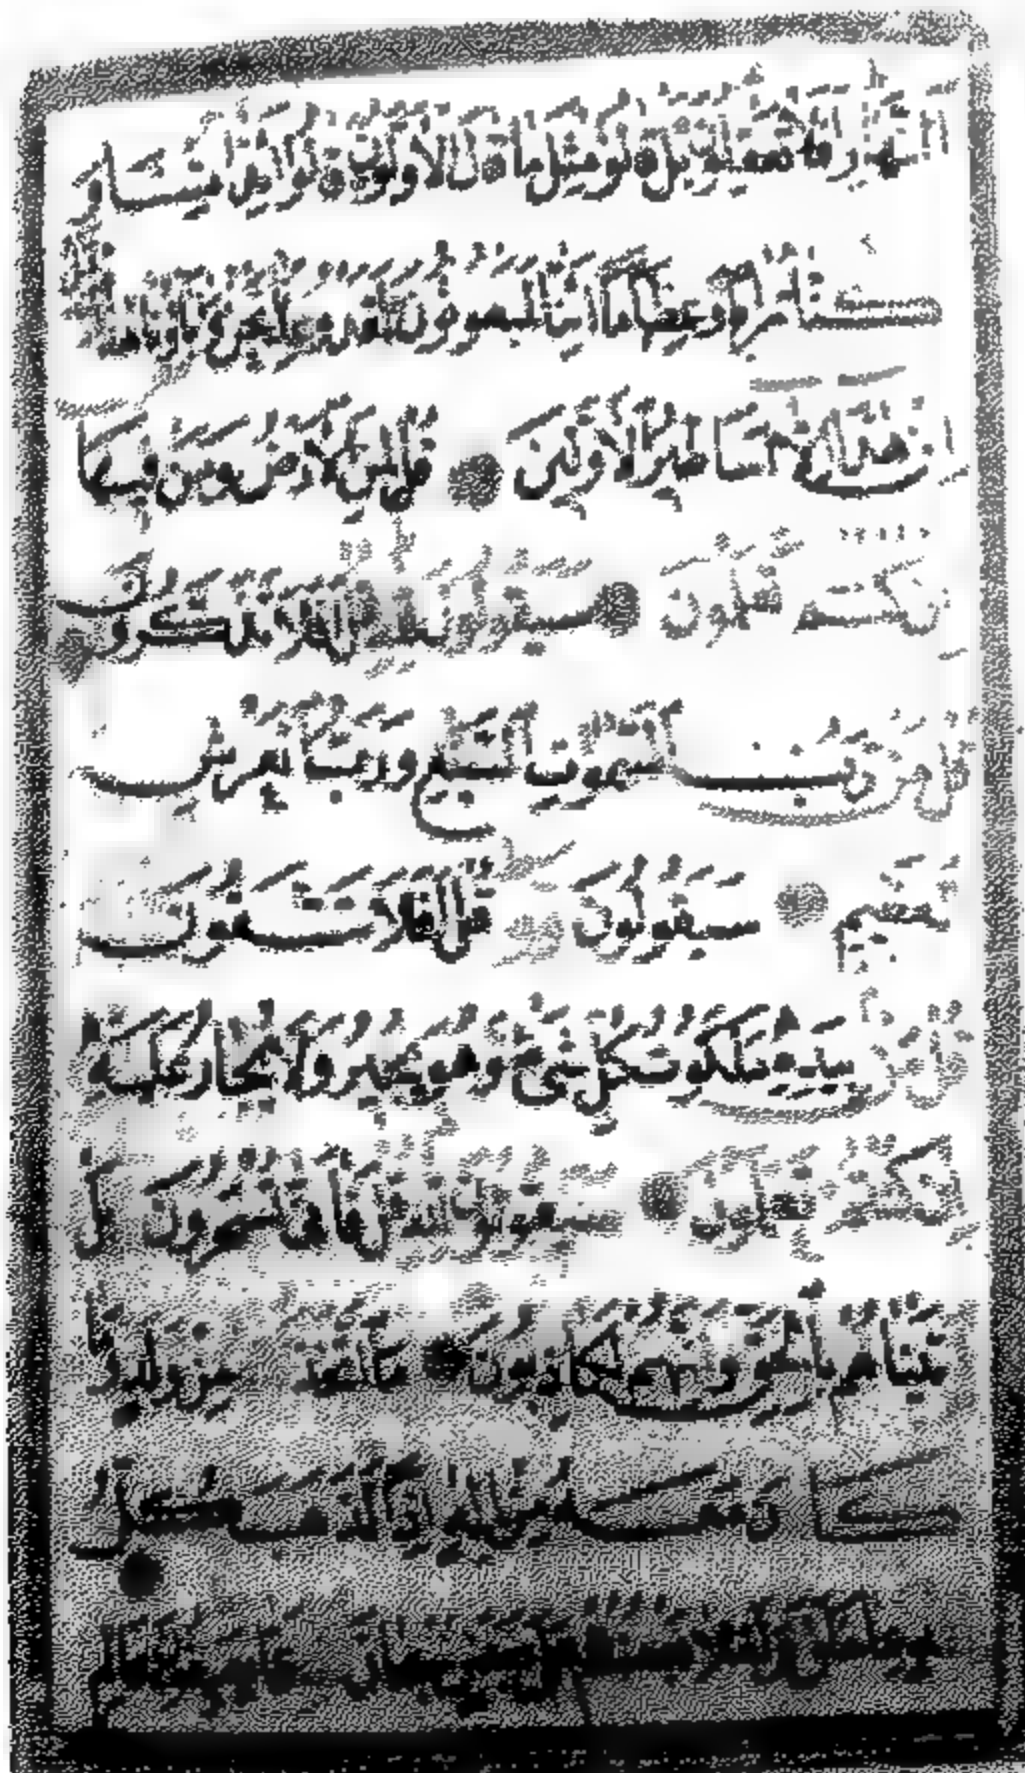 النهار افلا تعقلون بل قالوا مثل ما قال الاولون قالوا ائذا متنا و
كنا ترابا وعظاما ائنا لمبعوثون لقد وعدنا نحن واباؤنا هذا
ان هذا الا اساطير الاولين قل لمن الارض ومن فيها
ان كنتم تعلمون سيقولون لله قل افلا تذكرون
قل من رب السموات السبع ورب العرش
العظيم سيقولون لله قل افلا تتقون
قل من بيده ملكوت كل شيء وهو يجير ولا يجار عليه
ان كنتم تعلمون سيقولون لله قل فانى تسحرون بل
اتيناهم بالحق وانهم لكاذبون ما اتخذ الله من ولد وما
كان معه من اله اذا لذهب كل